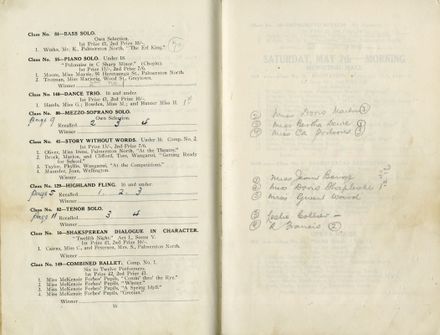 Class No. 84—BASS SOLO.
Own Selection.
1st Prize £1, 2nd Prize 10/-.
1 Winks, Mr. K., Palmerston North, "The Erl King."
Class No. 15—PIANO SOLO. Under 18.
"Polonaise in C Sharp Minor." (Chopin).
1st Prize 15/-, 2nd Prize 7/6.
1 Moore, Miss Marie, Palmerston North.
2 Thomas, Miss Marjorie, Wood St., Greytown.
Winner
Class No. 148—DANCE TRIO. 16 and under.
1st Prize £1, 2nd Prize 10/-.
1 Hands, Miss G.; Bowden, Miss M.; and Hunter Miss H. 1st
Class No. 80—MEZZO-SOPRANO SOLO.
Own Selection.
page 9 Recalled 2 3 4
Winner
Class No. 41—STORY WITHOUT WORDS. Under 16. Comp. No. 2
1st Prize 15/-, 2nd Prize 7/6.
1 Oliver, Miss Irene, Palmerston North, "At the Theatre."
2 Brock, Marion, and Clifford, Tom, Wanganui, "Getting Ready
for School."
3 Taylor, Phyllis, Wanganui, "At the Competitions."
4 Maunder, Jean, Wellington.
Winner
Class No. 129—HIGHLAND FLING. 16 and under.
page 5 Recalled 1 2 3
Winner
Class No. 82—TENOR SOLO.
page 11 Recalled 3 4
Winner
Class No. 50—SHAKSPEREAN DIALOGUE IN CHARACTER.
"Twelfth Night." Act 1., Scene V.
1st Prize £1, 2nd Prize 10/-.
1 Cairns, Miss C., and Petersen, Mrs. S., Palmerston North.
Winner
Class No. 149—COMBINED BALLET. Comp. No. 1.
Six to Twelve Performers.
1st Prize £2, 2nd Prize £1.
1 Miss McKenzie Forbes' Pupils, "Comin' thro' the Rye."
2 Miss McKenzie Forbes' Pupils, "Winter."
3 Miss McKenzie Forbes' Pupils, "A Spring Idyll."
4 Miss McKenzie Forbes' Pupils, "Grecian."
Winner
2 Miss Doris
3 Miss Bertha
4 Miss
Miss
2 Miss Doris 1st
3 Miss Gwen Wood
3 Leslie Collier
4 R Francis 2